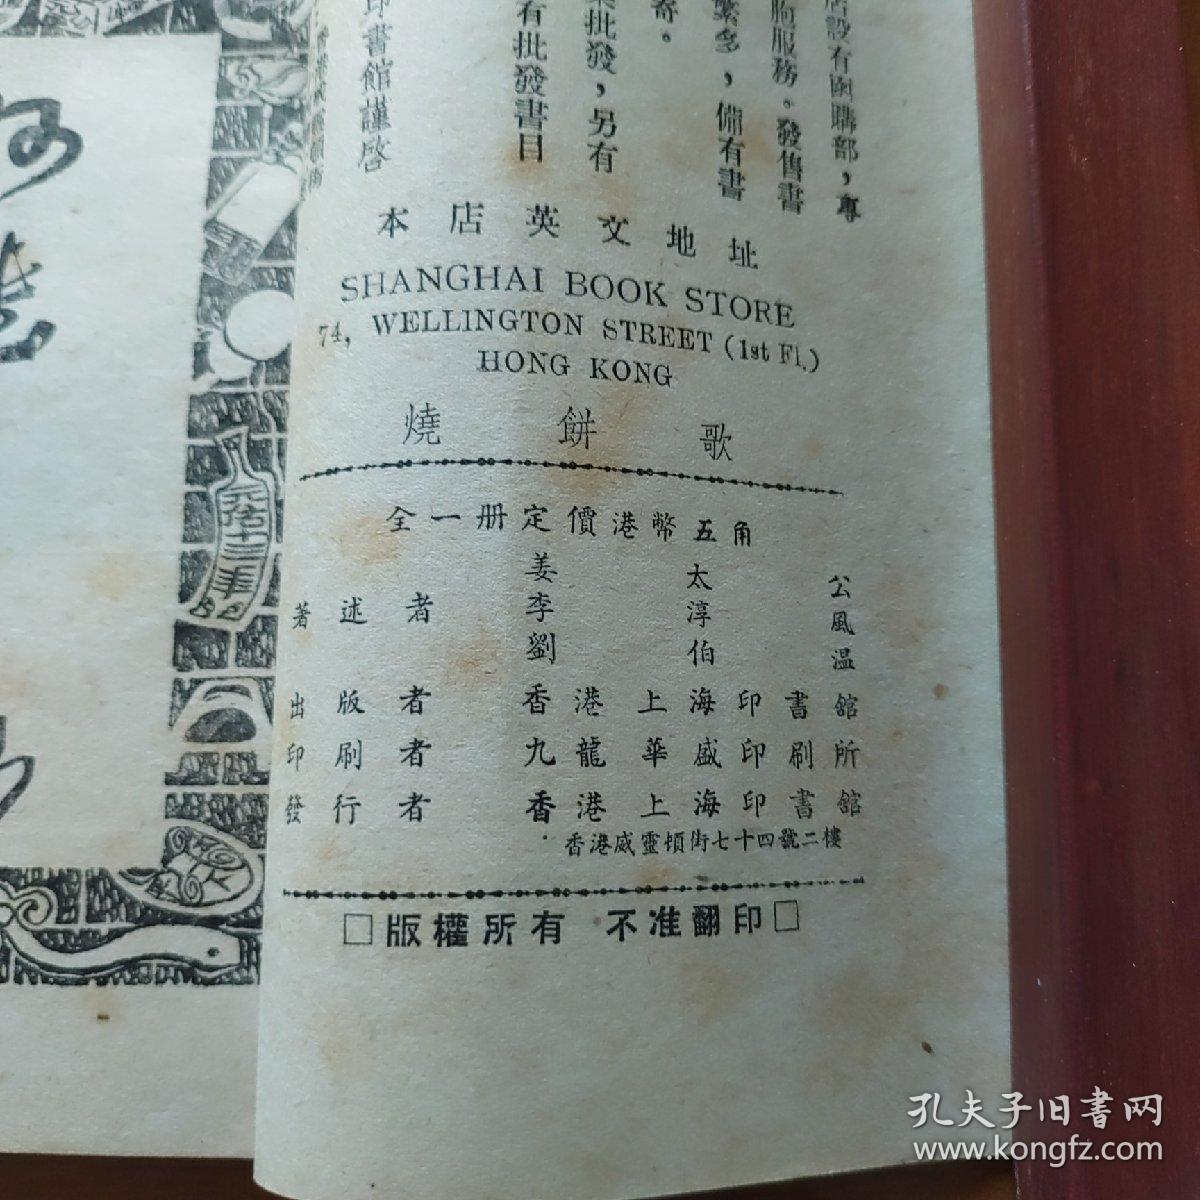 店設有函購部，專
胸服務。發售書
繁多，備有書
寄。
業批發，另有
有批發書目
印書館謹啓
本店英文地址
SHANGHAI BOOK STORE
74, WELLINGTON STREET (1st Fl.)
HONG KONG
燒餅歌
全一冊定價港幣五角
著述者 姜太公
李淳風
劉伯温
出版者 香港上海印書館
印刷者 九龍華盛印刷所
發行者 香港上海印書館
香港威靈頓街七十四號二樓
□版權所有 不准翻印□
孔夫子旧書网
www.kongfz.com